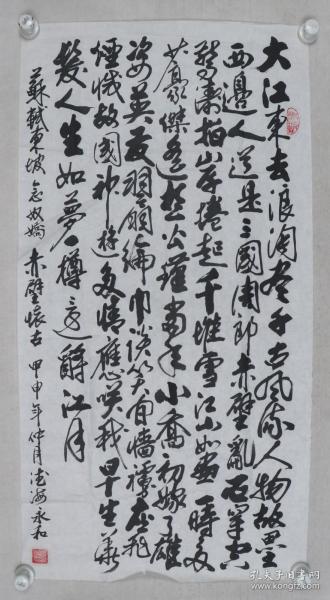 大江東去浪淘盡千古風流人物故壘
西邊人道是三國周郎赤壁亂石穿空
驚濤拍岸捲起千堆雪江山如畫一時多
少豪傑遙想公瑾當年小喬初嫁了雄
姿英發羽扇綸巾談笑間檣櫓灰飛
煙滅故國神遊多情應笑我早生華
髮人生如夢一樽還酹江月
蘇軾東坡念奴嬌赤壁懷古 甲申年仲月 永和
孔夫子旧书网